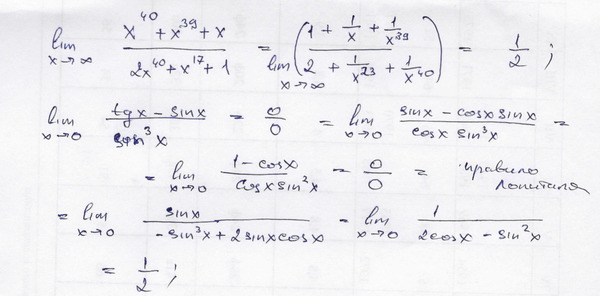 lim x→∞ (x^40 + x^39 + x)/(2x^40 + x^17 + 1) = lim x→∞ ((1 + 1/x + 1/x^39)/(2 + 1/x^23 + 1/x^40)) = 1/2 ;
lim x→0 (tg x - sin x)/(sin^3 x) = 0/0 = lim x→0 (sin x - cos x sin x)/(cos x sin^3 x) =
= lim x→0 (1 - cos x)/(cos x sin^2 x) = 0/0 = правило Лопиталя
= lim x→0 (sin x)/(-sin^3 x + 2 sin x cos x) = lim x→0 1/(2cos x - sin^2 x)
= 1/2 ;